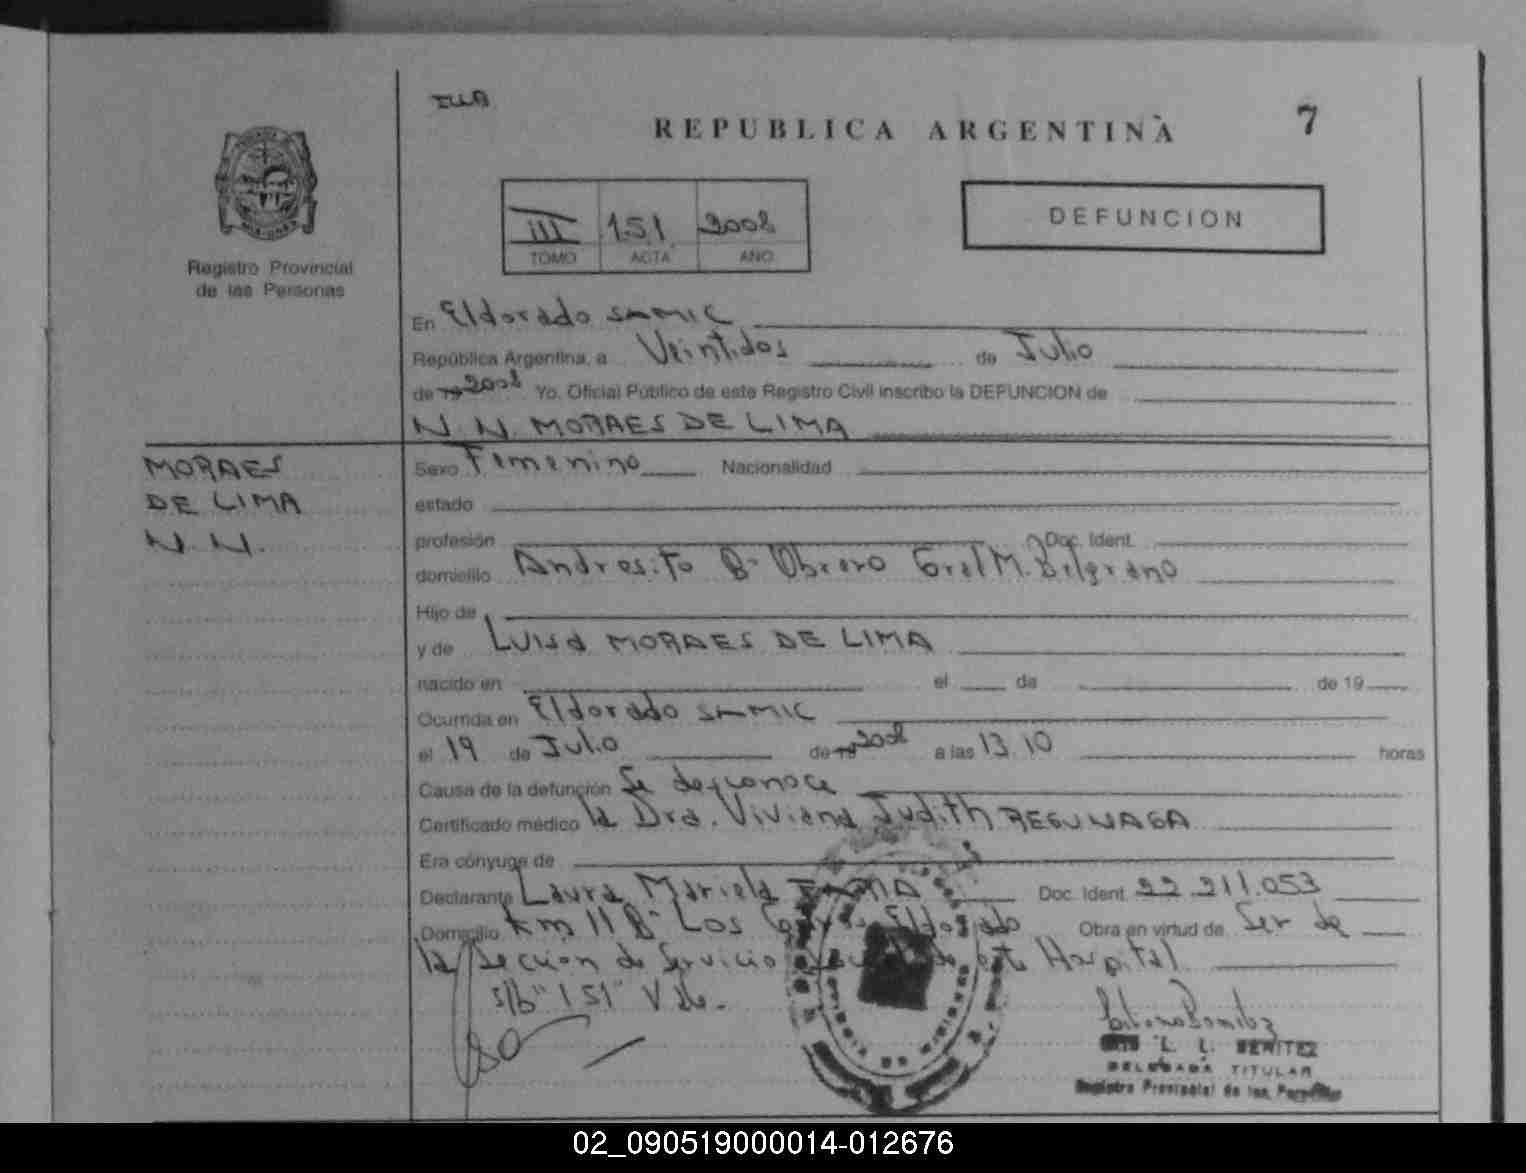 REPUBLICA ARGENTINA
7
III 151 2008
TOMO ACTA AÑO
DEFUNCION
Registro Provincial
de las Personas
En Eldorado SAMIC
República Argentina, a Veintidos de Julio
de 19 2008 Yo. Oficial Público de este Registro Civil inscribo la DEFUNCION de
N. N. MORAES DE LIMA
MORAES
DE LIMA
N. N.
Sexo Femenino Nacionalidad
estado
profesión Doc. Ident.
domicilio Andresito Bº Obrero Gral M. Belgrano
Hijo de
y de LUISA MORAES DE LIMA
nacido en el de de 19
Ocurrida en Eldorado SAMIC
el 19 de Julio de 19 2008 a las 13.10 horas
Causa de la defunción Se desconoce
Certificado médico la Dra. Viviana Judith REGUNAGA
Era cónyuge de
Declarante Laura Mariela Doc. Ident. 22.211.053
Domicilio Km 11 Bº Los Eldorado Obra en virtud de Ser de
la Seccion de Servicio de este Hospital
s/b "151" Vale.
L. L. BENITEZ
DELEGADA TITULAR
Registro Provincial de las Personas
02_090519000014-012676